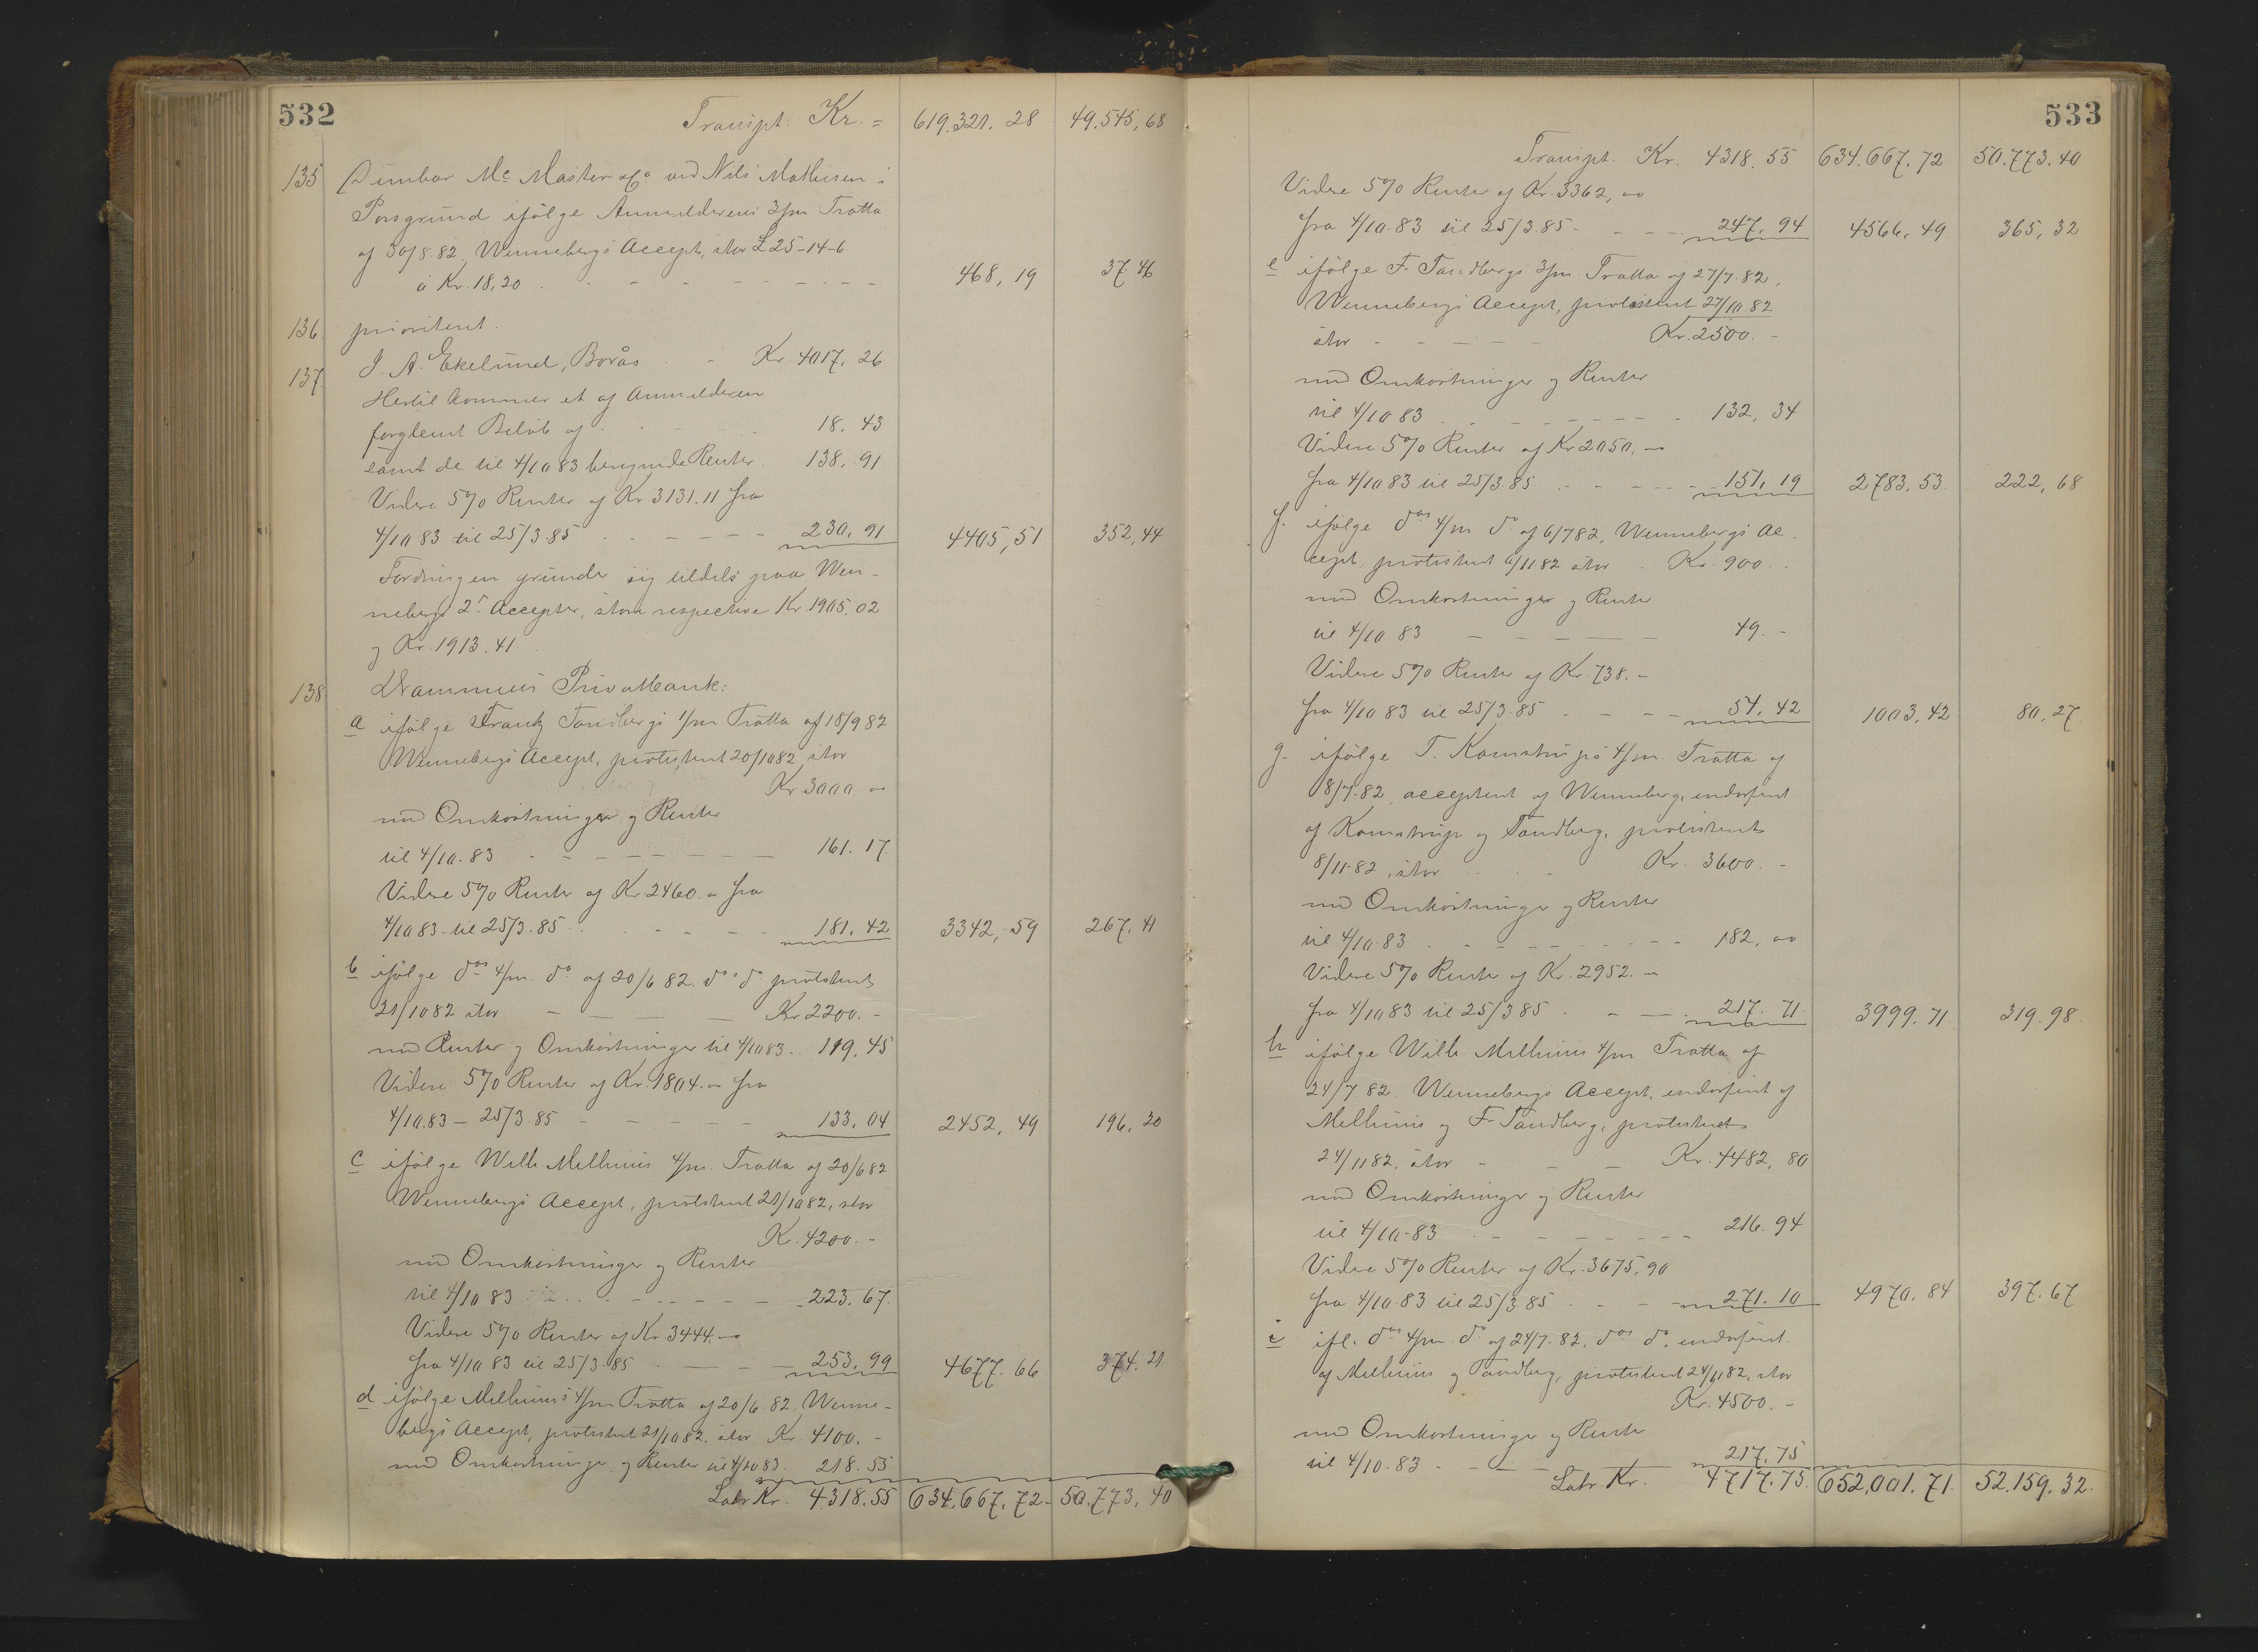 532
Transpt. Kr. = 619.321. 28 49.545,68
135 Dunbar Mc Master & Co ved Nils Mathisen i
Porsgrund ifølge Anmelderens 3/m Tratta
af 30/8.82, Wennebergs Accept, stor £ 25-14-6
à Kr. 18,20 468, 19 37.46
136. prioritert.
137. J. A. Ekelund, Borås Kr. 4017. 26
Hertil kommer et af Anmelderen
forglemt Beløb af 18. 43
samt de til 4/10 83 beregnede Renter 138. 91
Videre 5% Renter af Kr. 3131.11 fra
4/10 83 til 25/3.85 230. 91 4405,51 352,44
Fordringen grunder sig tildels paa Wen-
nebergs 2de Accepter, store respective Kr 1905.02
og Kr. 1913.41.
138. Drammens Privatbank:
a ifølge Frantz Tandbergs 1/m Tratta af 18/9 82
Wennebergs Accept, protestert 20/10 82, stor
Kr 3000. "
med Omkostninger og Renter
til 4/10. 83 161. 17.
Videre 5% Renter af Kr. 2460. " fra
4/10 83 til 25/3.85 181. 42 3342, 59 267. 41
b ifølge dos 4/m. do af 20/6 82. dos do protestert
21/10 82 stor Kr 2200. -
med Renter og Omkostninger til 4/10 83. 119. 45
Videre 5% Renter af Kr. 1804. " fra
4/10.83 - 25/3.85 133. 04 2452, 49 196. 20
c ifølge Wilh. Melhuus 4/m. Tratta af 20/6 82
Wennebergs Accept, protestert 21/10 82, stor
Kr. 4200. -
med Omkostninger og Renter
til 4/10 83 223. 67.
Videre 5% Renter af Kr 3444. "
fra 4/10 83 til 25/3.85 253. 99 4677. 66 374. 21
d ifølge Melhuus's 4/m Tratta af 20/6.82, Wenne-
bergs Accept, protestert 21/10 82, stor Kr. 4100. -
med Omkostninger og Renter til 4/10 83. 218. 55
Latr. Kr. 4318.55 634.667.72 50.773, 40
533
Transpt. Kr. 4318. 55 634.667. 72 50.773.40
Videre 5% Renter af Kr. 3362, "
fra 4/10.83 til 25/3.85 - 247. 94 4566. 49 365, 32
e ifølge F. Tandbergs 3/m. Tratta af 27/7.82,
Wennebergs Accept, protestert 27/10.82
stor Kr. 2500. -
med Omkostninger og Renter
til 4/10 83 132, 34
Videre 5% Renter af Kr 2050. "
fra 4/10 83 til 25/3.85 151. 19 2783. 53 222, 68
f. ifølge dos 4/m do af 6/7 82, Wennebergs Ac-
cept, protestert 6/11 82 stor Kr. 900. -
med Omkostninger og Renter
til 4/10 83 49. -
Videre 5% Renter af Kr. 738. "
fra 4/10 83 til 25/3.85 54. 42 1003, 42 80, 27.
g. ifølge T. Kamstrups 4/m. Tratta af
8/7.82, acceptert af Wenneberg, endossert
af Kamstrup og Tandberg, protestert
8/11-82, stor Kr. 3600. -
med Omkostninger og Renter
til 4/10.83 182, "
Videre 5% Renter af Kr. 2952. "
fra 4/10 83 til 25/3 85 217. 71 3999. 71 319. 98.
h ifølge Wilh. Melhuus 4/m Tratta af
24/7 82. Wennebergs Accept, endossert af
Melhuus og F. Tandberg, protestert
24/11 82, stor Kr. 4482, 80
med Omkostninger og Renter
til 4/10-83 216. 94
Videre 5% Renter af Kr. 3675, 90
fra 4/10.83 til 25/3 85 271. 10 4970. 84 397. 67
i ifl. dos 4/m. do af 24/7. 82, dos do, endossert.
af Melhuus og Tandberg, protestert 24/11 82, stor
Kr. 4500. -
med Omkostninger og Renter
til 4/10.83 217. 75
Latr. Kr. 4717. 75. 652.001. 71. 52.159. 32.